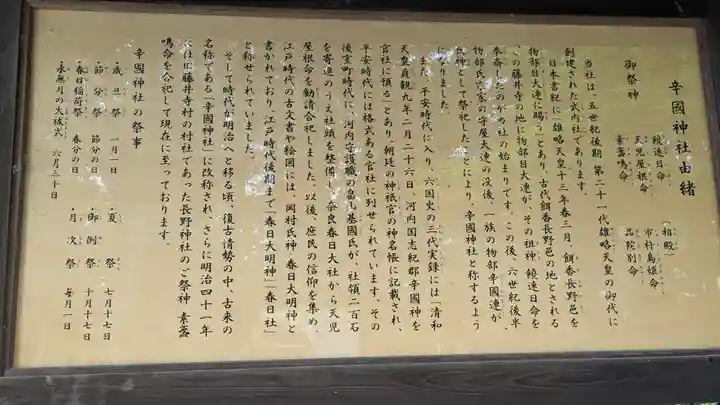 辛國神社由緒
御祭神
饒速日命
天児屋根命
素盞鳴命
(相殿)
市杵島姫命
品陀別命
当社は、五世紀後期 第二十一代 雄略天皇の御代に
創建された式内社であります。
日本書紀に「雄略天皇十三年春三月、餌香長野邑を
物部目大連に賜う」とあり、古代餌香長野邑の地とされる
この藤井寺の地に物部目大連が、その祖神 饒速日命を
奉斎したのが当社の始まりです。この後、六世紀後半
物部氏宗家の守屋大連の没後、一族の物部辛國連が
氏神として祭祀したことにより、辛國神社と称するよう
になりました。
また、平安時代に入り、六国史の三代実録には「清和
天皇貞観九年二月二十六日、河内国志紀郡辛國神を
官社に預る」とあり、朝廷の神祇官の神名帳に記載され、
平安時代には格式ある官社に列せられています。その
後室町時代に、河内守護職の畠山基國氏が、社領二百石
を寄進のうえ社頭を整備し、奈良春日大社から天児
屋根命を勧請合祀しました。以後、庶民の信仰を集め、
江戸時代の古文書や絵図には、岡村氏神・春日大明神と
書かれており、江戸時代後期まで「春日大明神」「春日社」
と称せられていました。
そして時代が明治へと移る頃、復古情勢の中、古来の
名称である「辛國神社」に改称され、さらに明治四十一年
には旧藤井寺村の村社であった長野神社のご祭神 素盞
鳴命を合祀して現在に至っております。
辛國神社の祭事
・歳旦祭 一月一日
・節分祭 節分の日
・春日稲荷祭 春分の日
・水無月の大祓式 六月三十日
・夏祭 七月十七日
・御例祭 十月十七日
・月次祭 毎月一日